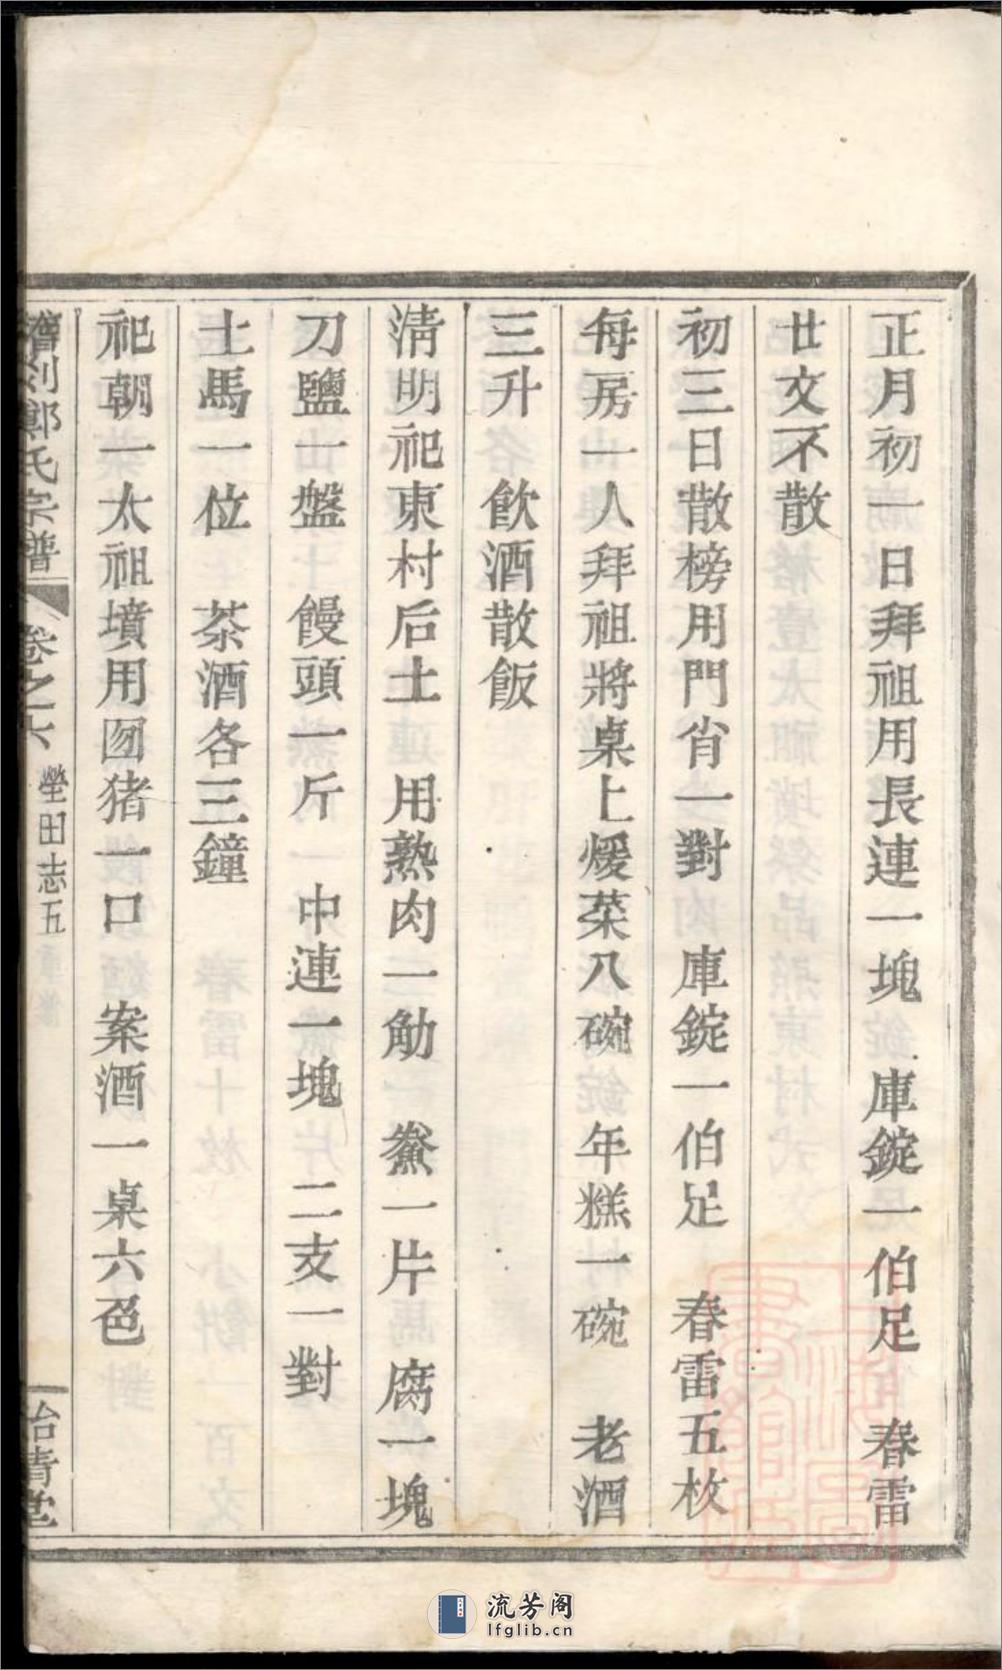 正月初一日拜祖用長連一塊　庫錠一伯足　春雷
廿文不散
初三日散榜用門宵一對　庫錠一伯足　春雷五枚
每房一人拜祖將桌上煖菜八碗　年糕一碗　老酒
三升　飲酒散飯
淸明祀東村后土　用熟肉一觔　鮝一片　腐一塊
刀鹽一盤　饅頭一斤　中連一塊　二支一對
土馬一位　茶酒各三鐘
祀朝一太祖墳用囫猪一口　案酒一桌六色
鄭氏宗譜　卷之六　塋田志五
流芳阁
lfglib.cn